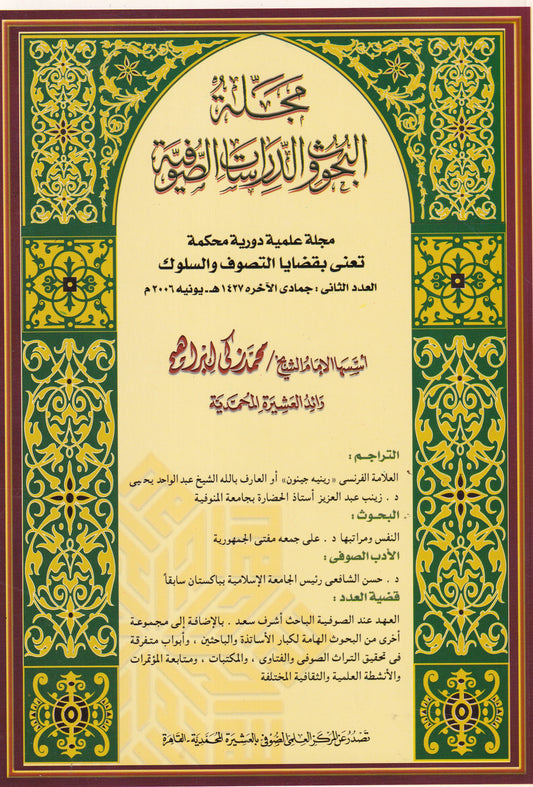 مجلة
البحوث والدراسات الصوفية
مجلة علمية دورية محكمة
تعنى بقضايا التصوف والسلوك
العدد الثانى : جمادى الآخره ١٤٢٧ هـ - يونيه ٢٠٠٦ م
أسسها الإمام الشيخ / محمد زكى إبراهيم
رائد العشيرة المحمدية
التراجم :
العلامة الفرنسى «رينيه جينون» أو العارف بالله الشيخ عبد الواحد يحيى
د . زينب عبد العزيز أستاذ الحضارة بجامعة المنوفية
البحوث :
النفس ومراتبها د . على جمعه مفتى الجمهورية
الأدب الصوفى :
د . حسن الشافعى رئيس الجامعة الإسلامية بباكستان سابقاً
قضية العدد :
العهد عند الصوفية الباحث أشرف سعد . بالإضافة إلى مجموعة
أخرى من البحوث الهامة لكبار الأساتذة والباحثين ، وأبواب متفرقة
فى تحقيق التراث الصوفى والفتاوى ، والمكتبات ، ومتابعة المؤتمرات
والأنشطة العلمية والثقافية المختلفة
تصدر عن المركز العلمى الصوفى بالعشيرة المحمدية - القاهرة